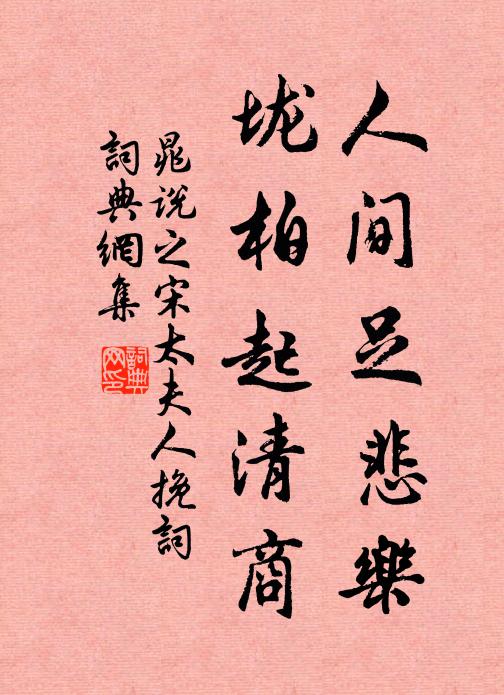 人间足悲樂
垅柏起清商
晁说之宋太夫人挽詞
詞典網集
詞典
网印